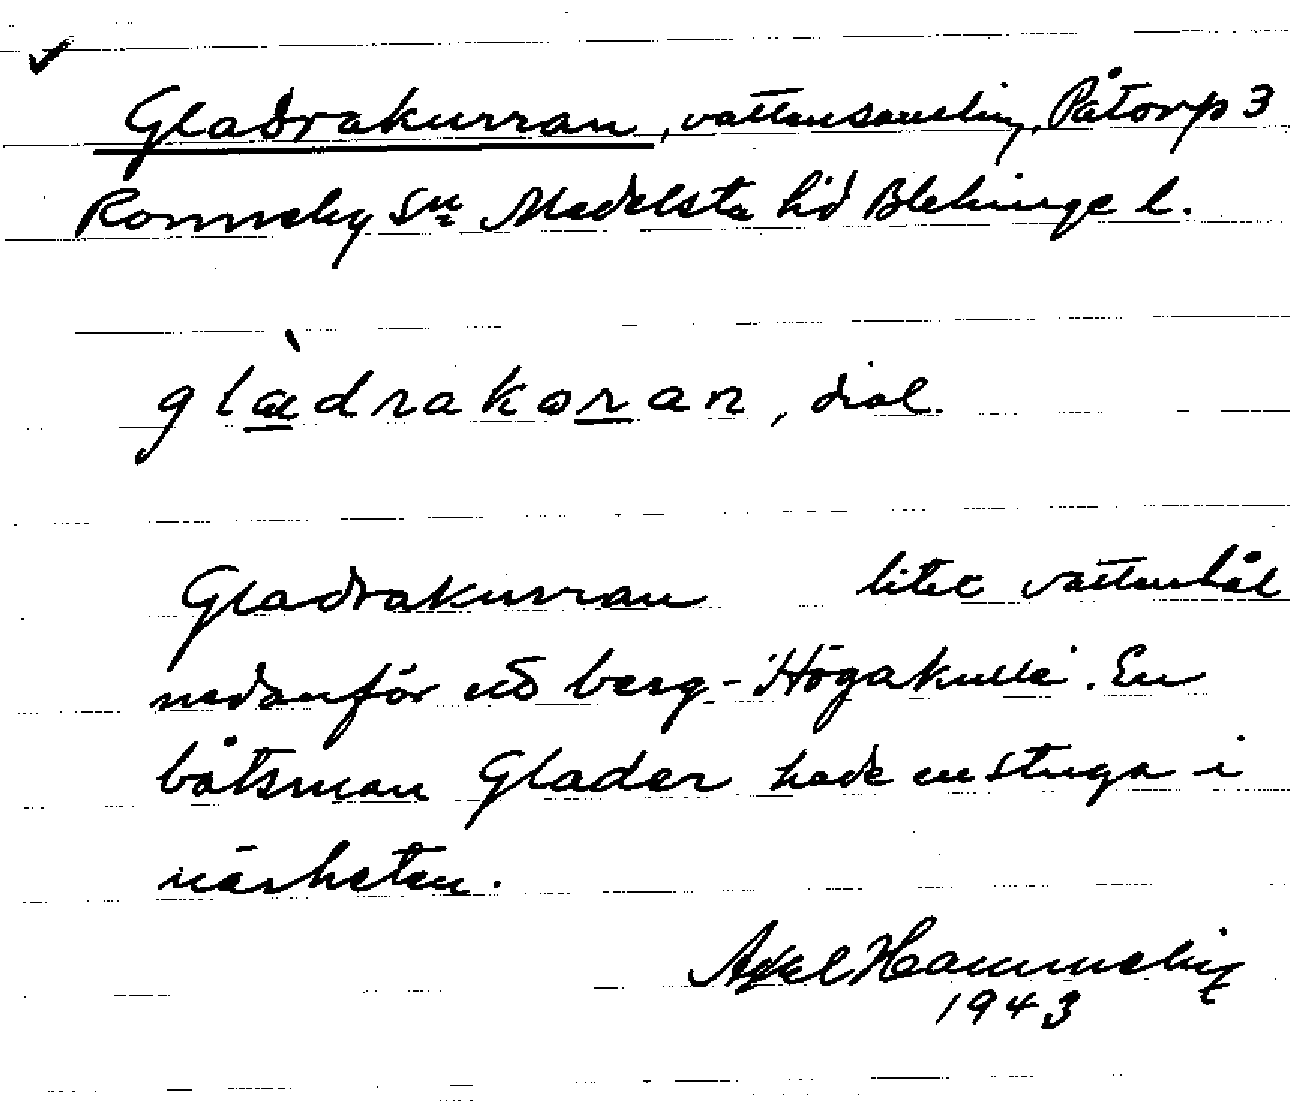 Gladrakurran, vattensamling, Påtorp 3
Ronneby Sn Medelsta hd Blekinge l.
glàdrakoran, dial.
Gladrakurran litet vattenhål
nedanför ett berg - 'Högakulle'. En
båtsman Glader hade en stuga i
närheten.
Axel Hammeby
1943